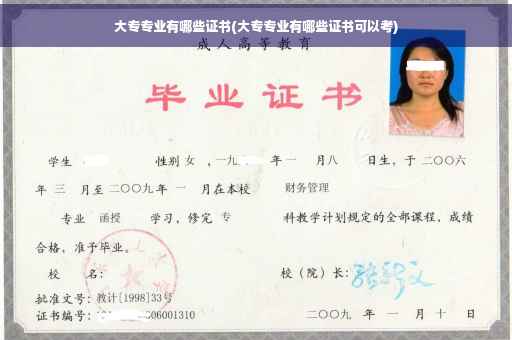 大专专业有哪些证书(大专专业有哪些证书可以考)
成人高等教育
毕业证书
学生 性别 女 ,一九 年 一 月八 日生,于 二〇〇六
年 三 月至 二〇〇九 年 一 月在本校 财务管理
专业 函授 学习,修完 专 科教学计划规定的全部课程,成绩
合格,准予毕业。
校 名: 校(院)长:
批准文号:教计[1998]33号
证书编号: 06001310 二〇〇九 年 一 月 十 日